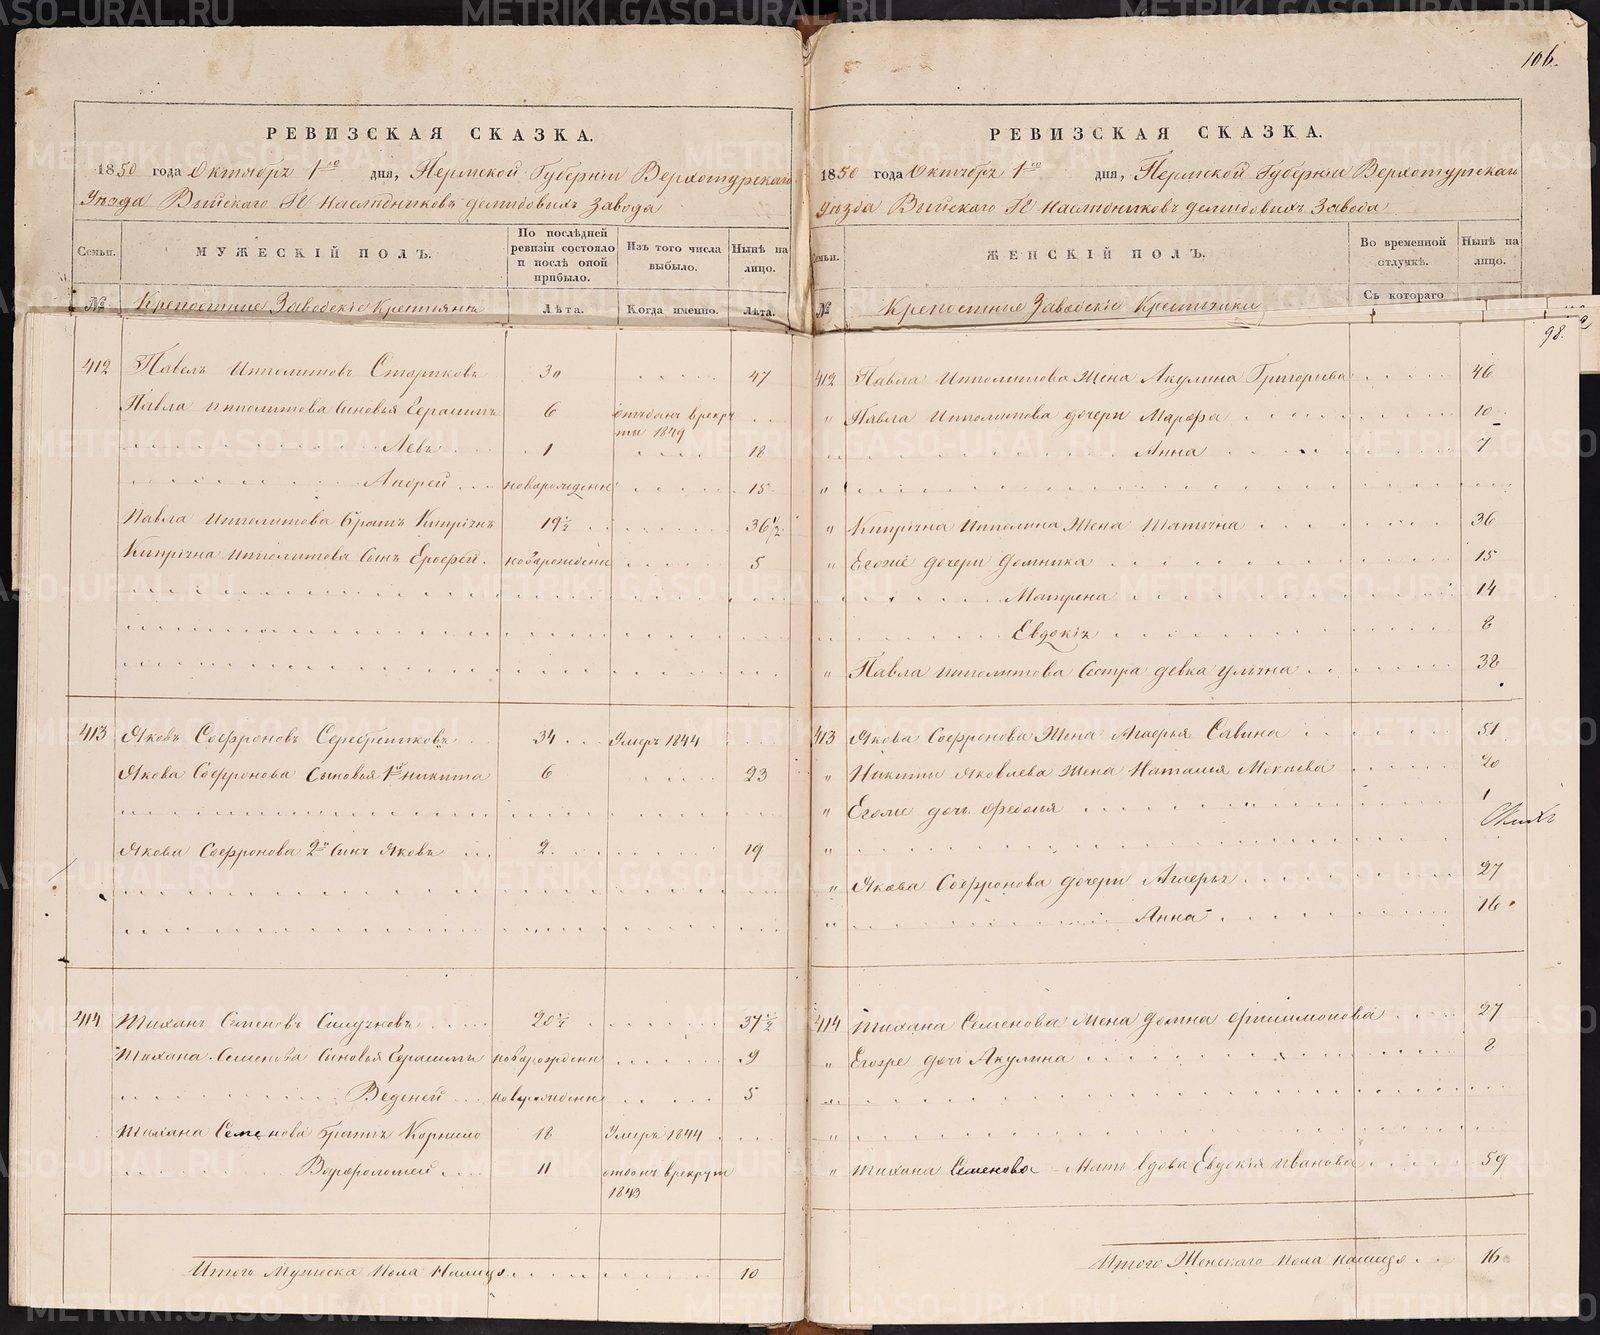 106.
РЕВИЗСКАЯ СКАЗКА.
1850 года Октября 1го дня, Пермской Губерніи Верхотурскаго
Уѣзда Выйскаго Гг Наслѣдниковъ Демидовыхъ Завода
Семьи. МУЖЕСКІЙ ПОЛЪ. По послѣдней ревизіи состояло и послѣ оной прибыло. Изъ того числа выбыло. Нынѣ на лицо.
№ Крепостные Заводскіе Крестьяне Лѣта. Когда именно. Лѣта.
412 Павелъ Ипполитовъ Стариковъ 30 47
Павла Ипполитова Сыновья Герасимъ 6 отъданъ в рекруты 1849
Левъ 1 18
Андрей новорожденн 15
Павла Ипполитова братъ Кипріянъ 19½ 36½
Кипріяна Ипполитова Сынъ Ерофей новорожденн 5
413 Яковъ Софроновъ Серебрениковъ 34 Умеръ 1844
Якова Софронова Сыновья 1й Никита 6 23
Якова Софронова 2й Сынъ Яковъ 2 19
414 Тиханъ Семеновъ 20½ 37½
Тихана Семенова Сыновья Герасимъ новорожденн 9
Веденей новорожденн 5
Тихана Семенова братъ Корнило 18 Умеръ 1844
Варфоломей 11 отданъ в рекруты 1843
Итого Мужеска Пола Налицо 10
РЕВИЗСКАЯ СКАЗКА.
1850 года Октября 1го дня, Пермской Губерніи Верхотурскаго
Уѣзда Выйскаго Гг Наслѣдниковъ Демидовыхъ Завода
Семьи. ЖЕНСКІЙ ПОЛЪ. Во временной отлучкѣ. Нынѣ на лицо.
№ Крепостные Заводскіе Крестьянки Съ котораго
98.
412 Павла Ипполитова Жена Акулина Григорьева 46
" Павла Ипполитова дочери Марфа 10
Анна 7
" Кипріяна Жена Татьяна 36
" Егоже дочери Домника 15
Матрена 14
Евдокія 8
" Павла Ипполитова Сестра девка Ульяна 38
413 Якова Софронова Жена Агафья Савина 51
" Никиты Яковлева Жена Наталья Мокиева 20
" Егоже дочь Федосья 1
" Якова Софронова дочери Агафья 27
Анна 16
414 Тихана Семенова Жена Домна Филимонова 27
" Егоже дочь Акулина 8
" Тихана Семенова Мать вдова Евдокія Иванова 59
Итого Женскаго пола налицо 16
METRIKI.GASO-URAL.RU